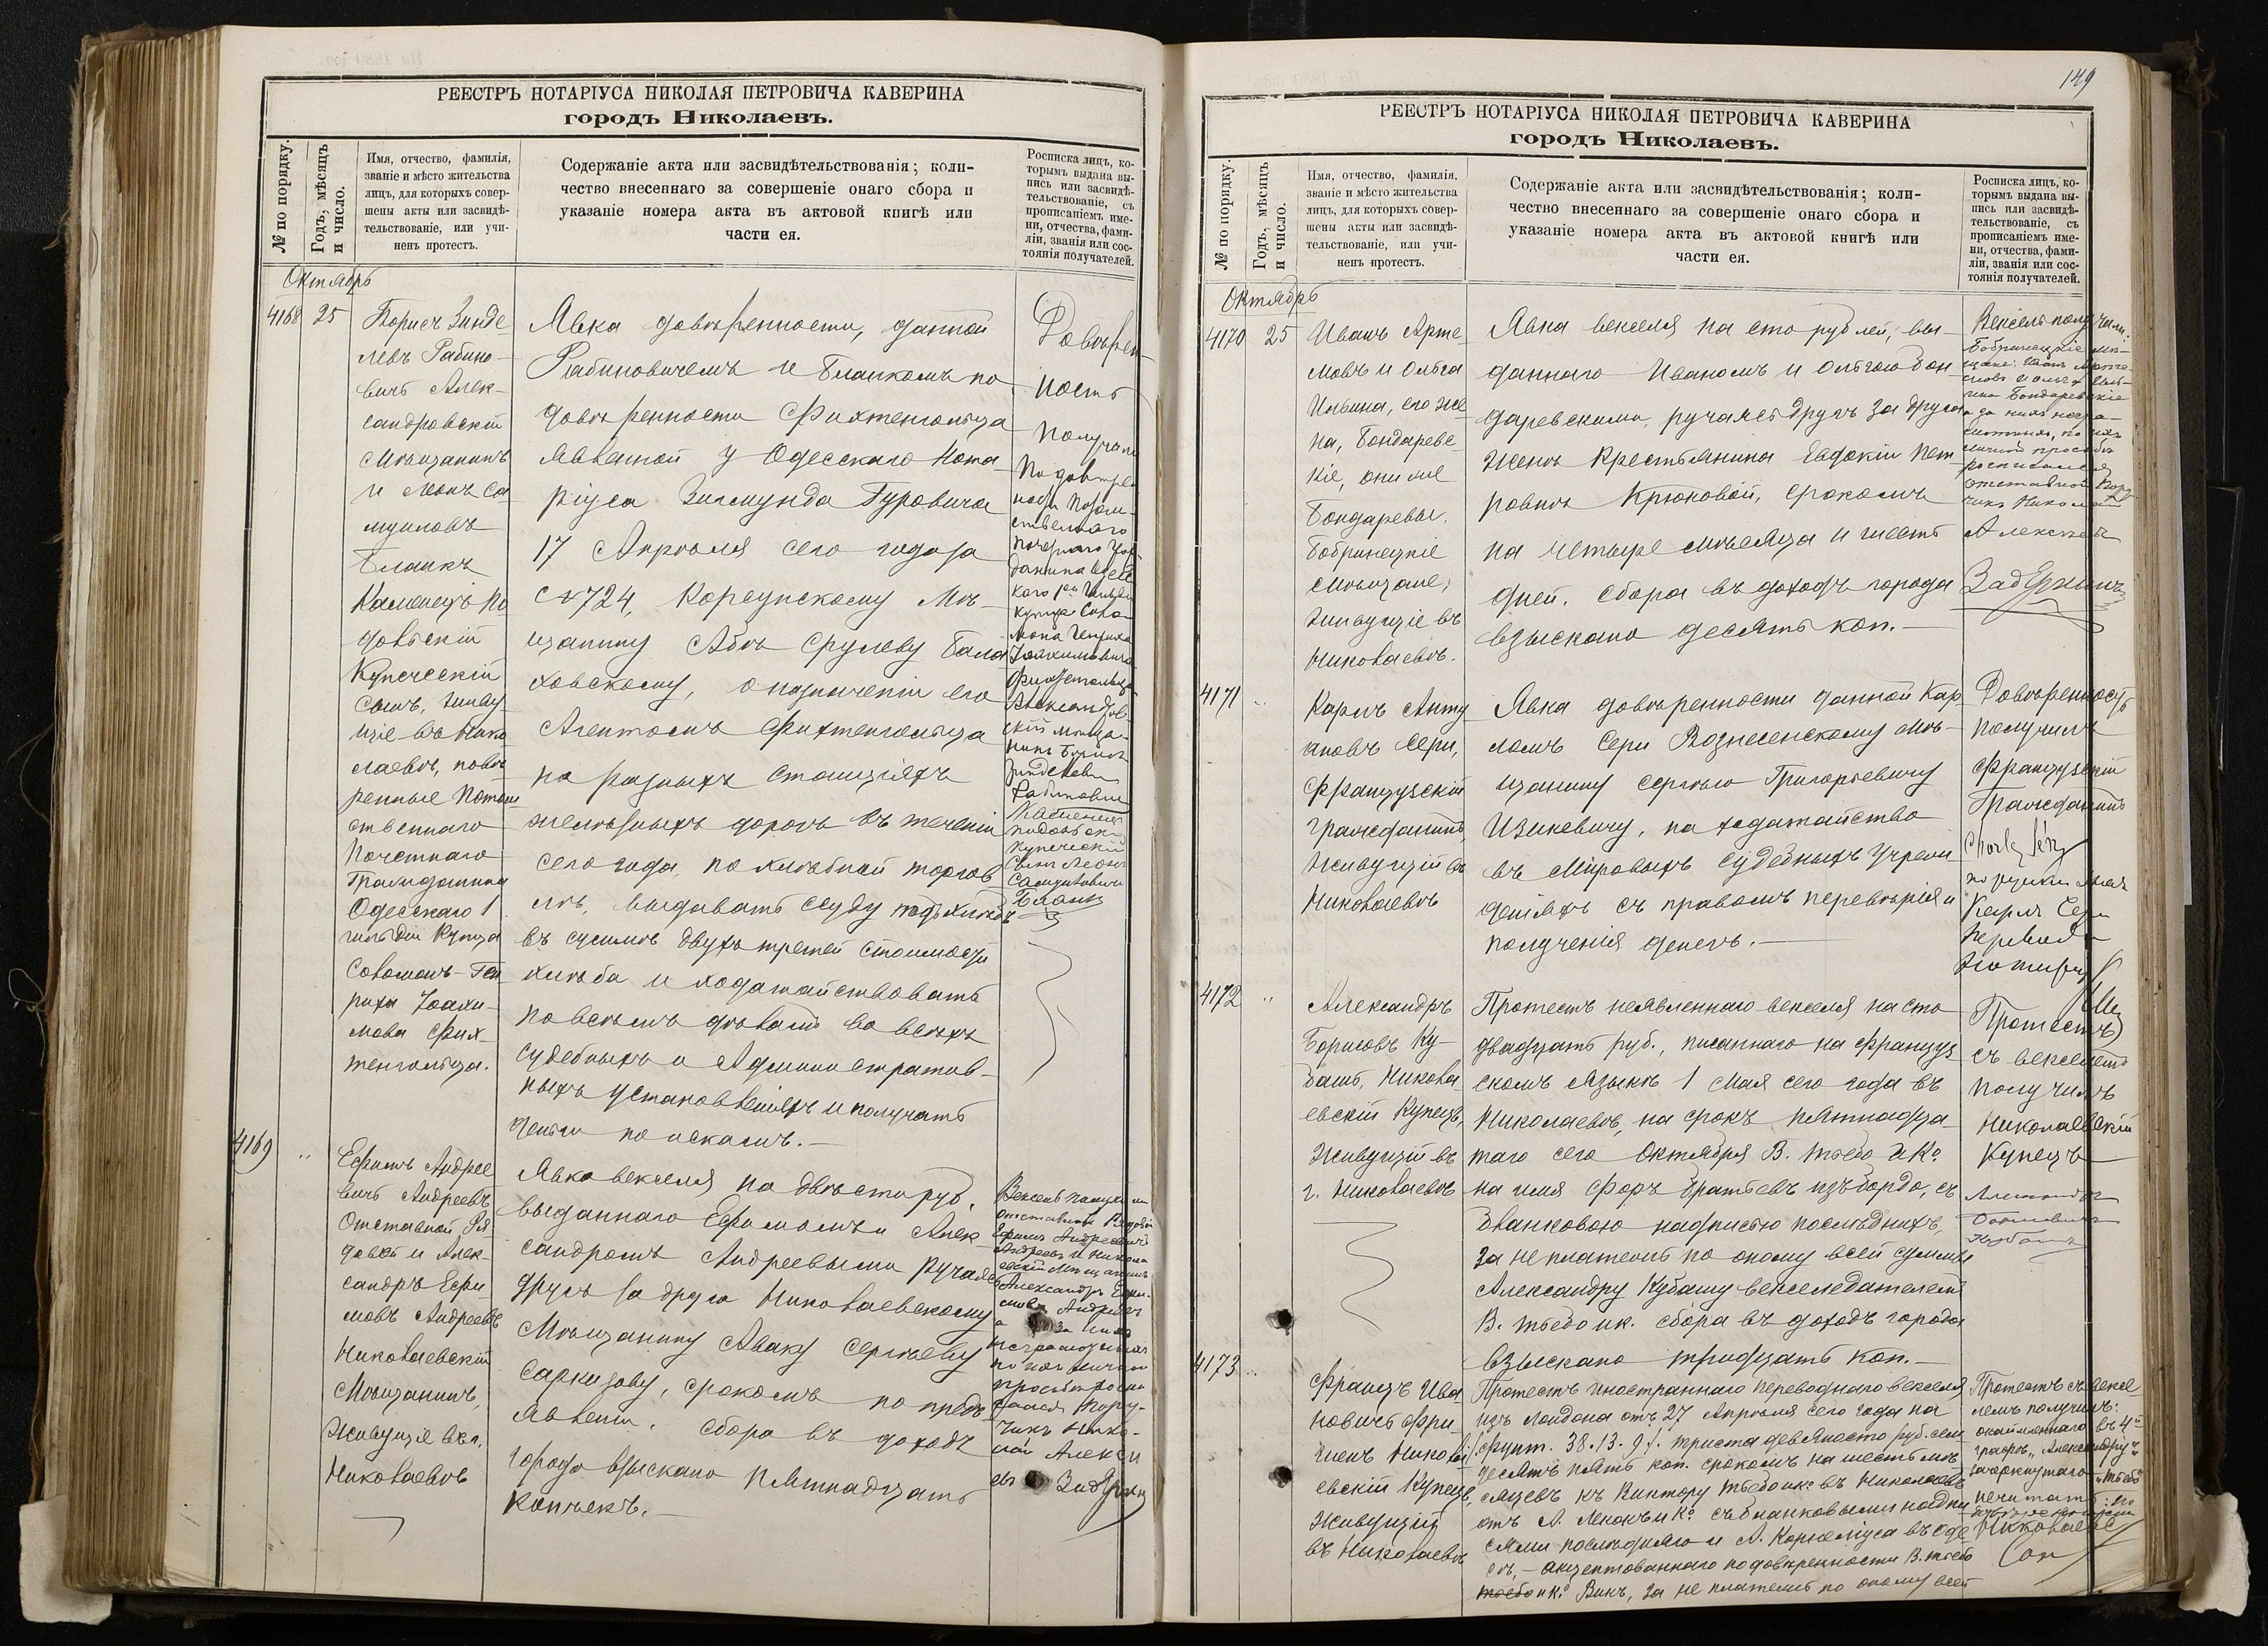 РЕЕСТРЪ НОТАРІУСА НИКОЛАЯ ПЕТРОВИЧА КАВЕРИНА
городъ Николаевъ.
№ по порядку.
Годъ, мѣсяцъ
и число.
Имя, отчество, фамилія,
званіе и мѣсто жительства
лицъ, для которыхъ совер-
шены акты или засвидѣ-
тельствованіе, или учи-
ненъ протестъ.
Содержаніе акта или засвидѣтельствованія; коли-
чество внесеннаго за совершеніе онаго сбора и
указаніе номера акта въ актовой книгѣ или
части ея.
Росписка лицъ, ко-
торымъ выдана вы-
пись или засвидѣ-
тельствованіе, съ
прописаніемъ име-
ни, отчества, фами-
ліи, званія или сос-
тоянія получателей.
Октябрь
4168
25
Борисъ Зинде
левъ Рабино-
вичъ Алек-
сандровскій
Мѣщанинъ
и Леонъ Са
муиловъ
Бланкъ
Каменецъ По
дольскій
Купеческій
Сынъ, живу
щіе въ Нико
лаевѣ, повѣ
ренные Потом
ственнаго
Почетнаго
Гражданина
Одесскаго 1
гильдіи Купца
Соломонъ-Ген
риха Іоахи-
мова Фих-
тенгольца.
Явка довѣренности, данной
Рабиновичемъ и Бланкомъ по
довѣренности Фихтенгольца
явленной у Одесскаго Нота-
ріуса Зигмунда Гуровича
17 Апрѣля сего года за
№ 724, Корсунскому Мѣ-
щанину Абѣ Срулеву Бала
ховскому, о назначеніи его
Агентомъ Фихтенгольца
на разныхъ станціяхъ
желѣзныхъ дорогъ въ теченіи
сего года, по хлѣбной торгов
лѣ, выдавать ссуду подъ хлѣбъ
въ суммѣ двухъ третей стоимости
хлѣба и ходатайствовать
по всѣмъ дѣламъ во всѣхъ
судебныхъ и Административ-
ныхъ установленіяхъ и получать
деньги по искамъ.—
Довѣрен-
ность
получили
По довѣрен
ности Потом-
ственнаго
почетнаго Граж
данина Одесс
каго 1ой Гильдіи
купца Соло-
мона Генриха
Іоахимовича
Фихтенгольца
Александров
скій мѣща-
нинъ Борисъ
Зинделевъ
Рабиновичъ
Каменецъ
подольскій
купеческій
Сынъ Леонъ
Самуиловичъ
Бланкъ
4169
"
Ефимъ Андрее
вичъ Андреевъ
Отставной Ря
довой и Алек-
сандръ Ефи
мовъ Андреевъ
Николаевскій
Мѣщанинъ,
живущіе въ г.
Николаевѣ
Явка векселя на двѣсти руб.
выданнаго Ефимомъ и Алек
сандромъ Андреевыми ручаясь
другъ за друга Николаевскому
Мѣщанину Аваку Сергѣеву
Саркизову, срокомъ по предъ
явленіи. Сбора въ доходъ
города взыскано пятнадцать
копѣекъ.—
Вексель получили
отставной Рядовой
Ефимъ Андреевичъ
Андреевъ и Никола
евскій Мѣщанинъ
Александръ Ефи-
мовъ Андреевъ
а за нихъ
неграмотныхъ
по ихъ личной
просьбѣ роспи
сался Пору-
чикъ Нико-
лай Алексе
евъ Задержинъ
149
РЕЕСТРЪ НОТАРІУСА НИКОЛАЯ ПЕТРОВИЧА КАВЕРИНА
городъ Николаевъ.
№ по порядку.
Годъ, мѣсяцъ
и число.
Имя, отчество, фамилія,
званіе и мѣсто жительства
лицъ, для которыхъ совер-
шены акты или засвидѣ-
тельствованіе, или учи-
ненъ протестъ.
Содержаніе акта или засвидѣтельствованія; коли-
чество внесеннаго за совершеніе онаго сбора и
указаніе номера акта въ актовой книгѣ или
части ея.
Росписка лицъ, ко-
торымъ выдана вы-
пись или засвидѣ-
тельствованіе, съ
прописаніемъ име-
ни, отчества, фами-
ліи, званія или сос-
тоянія получателей.
Октябрь
4170
25
Иванъ Арте-
мовъ и Ольга
Ильина, его же
на, Бондаревс
кіе, они же
Бондаревы,
Бобринецкіе
Мѣщане,
живущіе въ
Николаевѣ.
Явка векселя на сто рублей, вы-
даннаго Иваномъ и Ольгою Бон-
даревскими, ручаясь другъ за друга
женѣ Крестьянина Евдокіи Пет-
ровнѣ Крюковой, срокомъ
на четыре мѣсяца и шесть
дней. Сбора въ доходъ города
взыскано десять коп.—
Вексель получили:
Бобринецкіе мѣ-
щане: Иванъ Арте-
мовъ и Ольга Ильи-
нина Бондаревскіе
а за нихъ негра-
мотныхъ, по ихъ
личной просьбѣ
росписался
отставной Пору
чикъ Николай
Алексѣевъ
Задержинъ
4171
"
Карлъ Анту
ановъ Сери,
Французскій
гражданинъ,
живущій въ
Николаевѣ
Явка довѣренности данной Кар
ломъ Сери Вознесенскому Мѣ-
щанину Сергѣю Григорьевичу
Изикевичу, на ходатайство
въ Мировыхъ судебныхъ учреж
деніяхъ съ правомъ перевѣрія и
полученія денегъ.—
Довѣренность
получилъ
Французскій
Гражданинъ
Карлъ Сери
4172
"
Александръ
Борисовъ Ку-
башъ, Никола
евскій Купецъ,
живущій въ
г. Николаевѣ
Протестъ неявленнаго векселя на сто
двадцать руб., писаннаго на француз
скомъ языкѣ 1 Мая сего года въ
Николаевѣ, на срокъ пятнадца
таго сего Октября В. Тьебо и Ко
на имя Форъ братьевъ изъ Бордо, съ
бланковою надписью послѣднихъ,
за не платежъ по оному всей суммы
Александру Кубашу векселедателемъ
В. Тьебо и к. сбора въ доходъ города
взыскано тридцать коп.—
Протестъ
съ векселемъ
получилъ
Николаевскій
Купецъ
Александръ
Борисовичъ
Кубашъ
4173
"
Францъ Ива
новичъ Фри
шенъ Никола
евскій Купецъ,
живущій
въ Николаевѣ
Протестъ иностраннаго переводнаго векселя
изъ Лондона отъ 27 Апрѣля сего года на
фунт. 38.13.9/. триста девяносто руб. сем
десятъ пять коп. срокомъ на шесть мѣ
сяцевъ къ Виктору Тьебо и ко въ Николаевѣ
отъ А. Леконъ и Ко съ бланковыми надпи
сями послѣдняго и А. Корнеліуса въ Оде
сѣ, — акцептованнаго по довѣренности В. Тьебо
Тьебо и К. Викъ, за не платежъ по оному всей
Протестъ съ вексе
лемъ получилъ:
окаймленнаго въ 4й
графѣ „Александру"
зачеркнутаго „Тьебо"
нечитать: